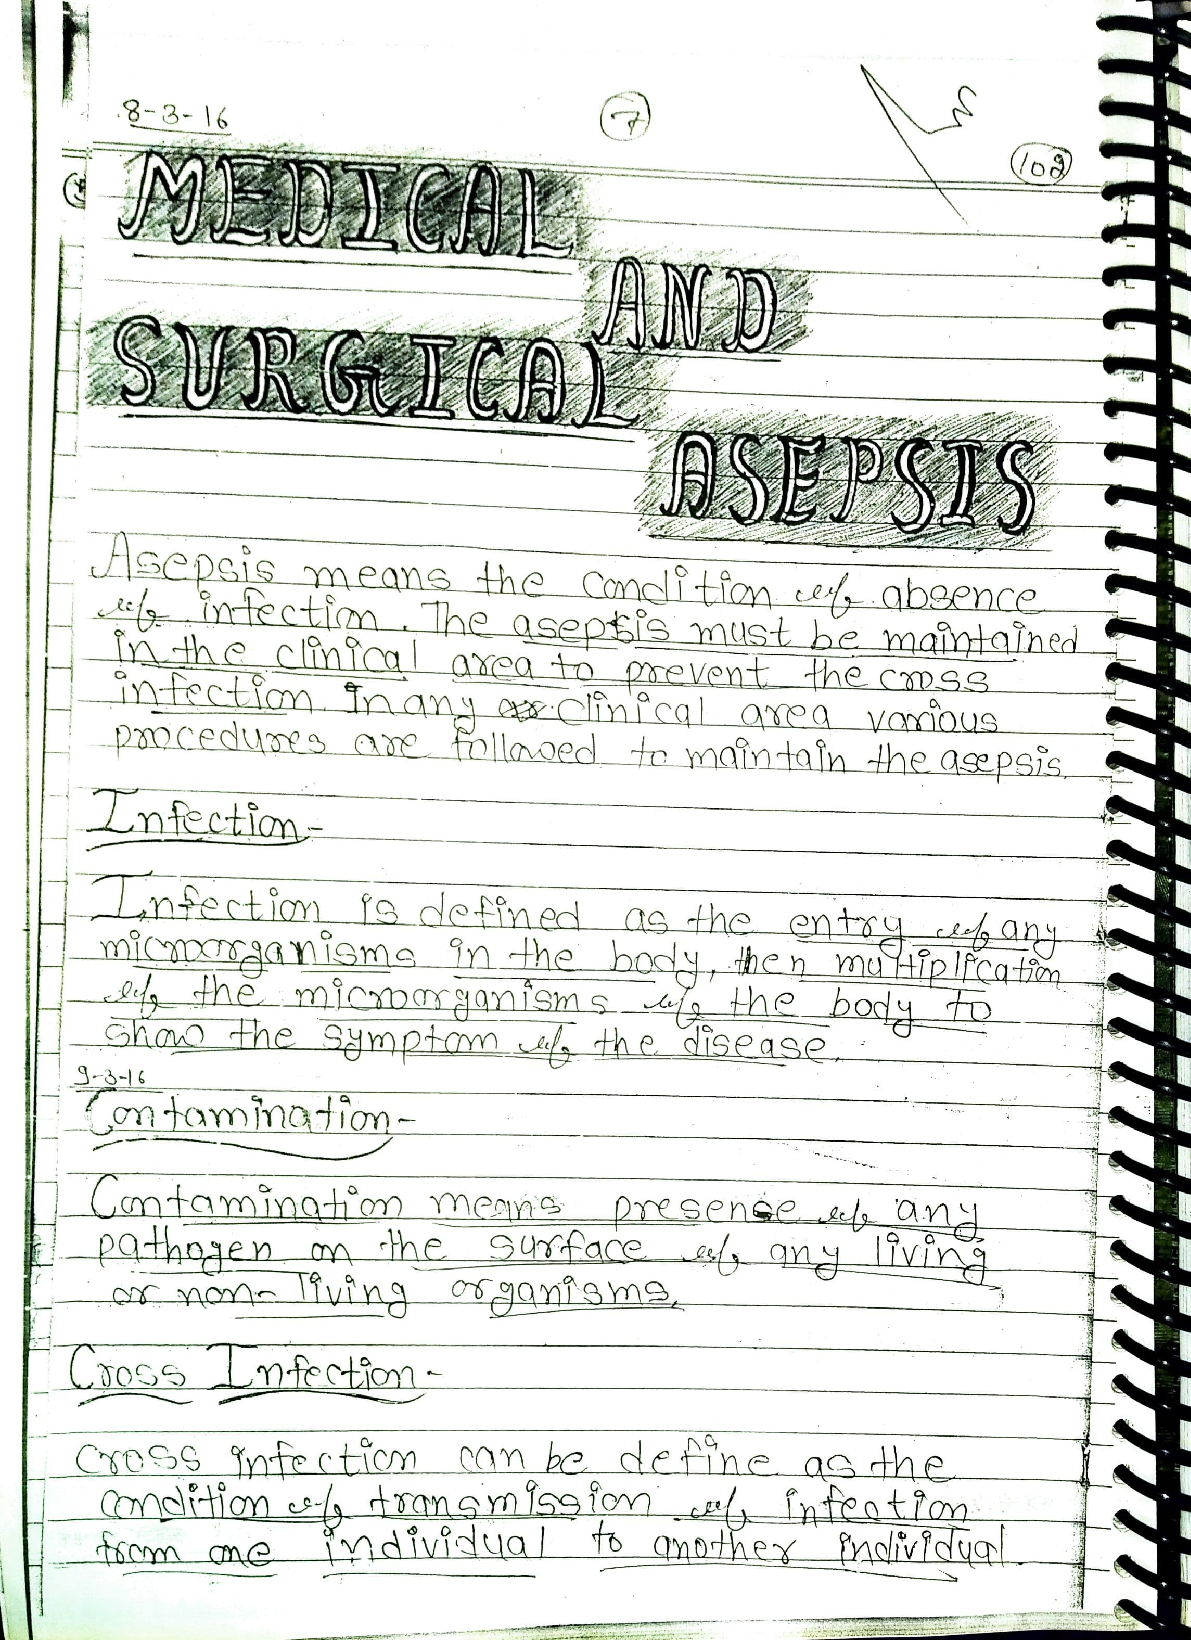 8-3-16
7
102
MEDICAL
AND
SURGICAL
ASEPSIS
Asepsis means the condition of absence
of infection. The asepsis must be maintained
in the clinical area to prevent the cross
infection. In any clinical area various
procedures are followed to maintain the asepsis.
Infection-
Infection is defined as the entry of any
microorganisms in the body, then multiplication
of the microorganisms of the body to
show the symptom of the disease.
9-3-16
Contamination-
Contamination means presense of any
pathogen on the surface of any living
or non-living organisms.
Cross Infection-
Cross infection can be define as the
condition of transmission of infection
from one individual to another individual.